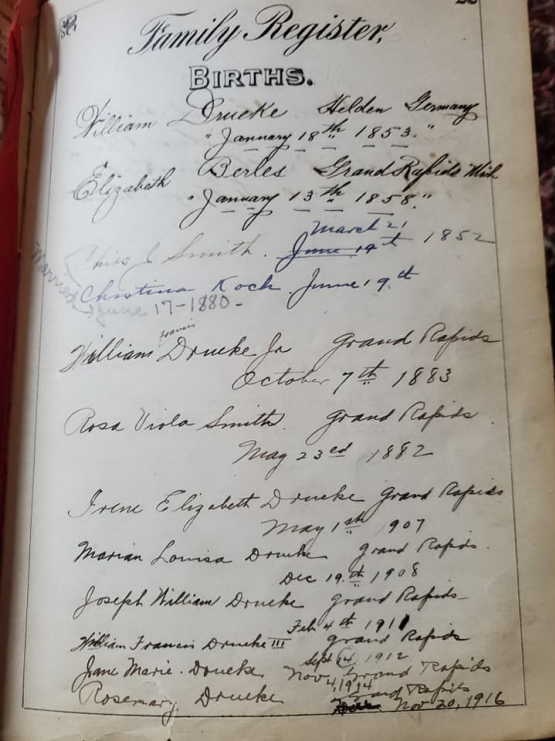 Family Register,
BIRTHS.
William Druecke Helden Germany
"January 18th 1853."
Elizabeth Berles Grand Rapids Mich
"January 13th 1858."
March 21
Smith. June 19th 1852
Christina Koch. June 19th
Married June 17-1880-
Francis
William Druecke Jr Grand Rapids
October 7th 1883
Rosa Viola Smith. Grand Rapids.
May 23ed 1882
Irene Elizabeth Druecke Grand Rapids
May 1st 1907
Marian Louisa Druecke Grand Rapids.
Dec 19.th 1908
Joseph William Druecke Grand Rapids
Feb 4th 1911
William Francis Druecke III Grand Rapids
Sept 1912
Jane Marie. Druecke Grand Rapids
Nov 4, 1914
Rosemary Druecke Grand Rapids
Nov 20, 1916